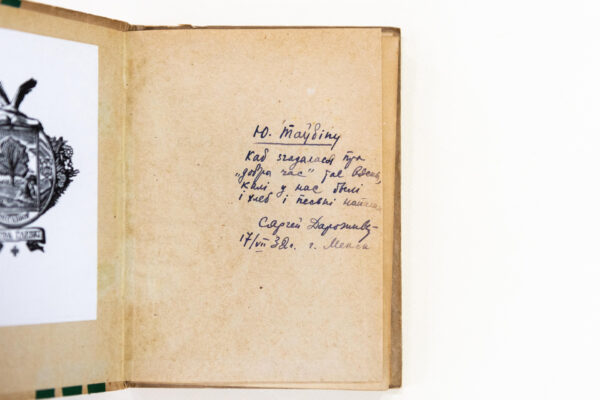 Ю. Таўбіну
Каб згадалася пра
„добры час" тае вясны,
калі у нас былі
і хлеб і песьні
Сяргей Дарожны
17/VII 32 г. г. Менск